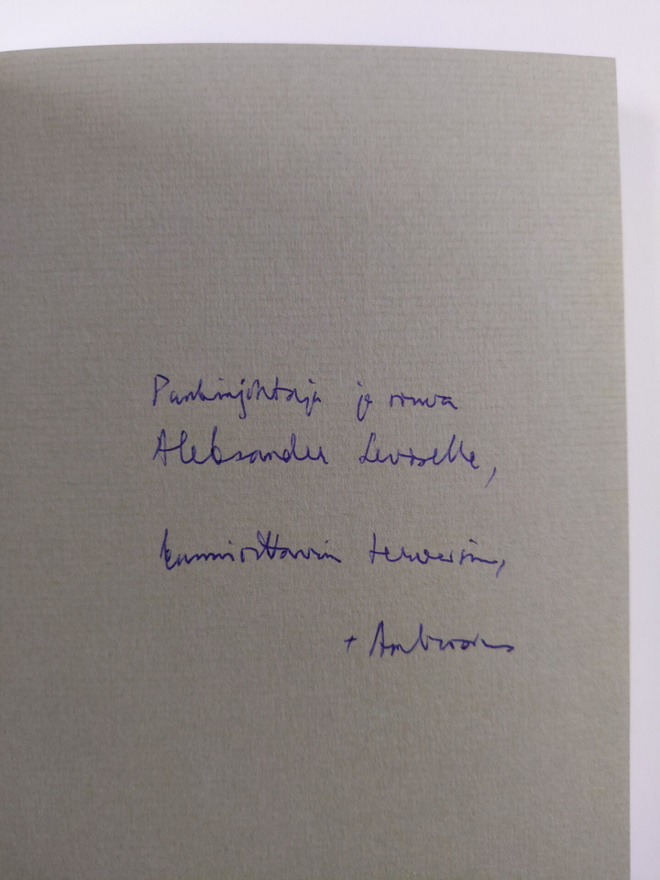 Pankinjohtaja ja rouva
Aleksander Leviselle,
kunnioittavin terveisin,
+ Ambrosius